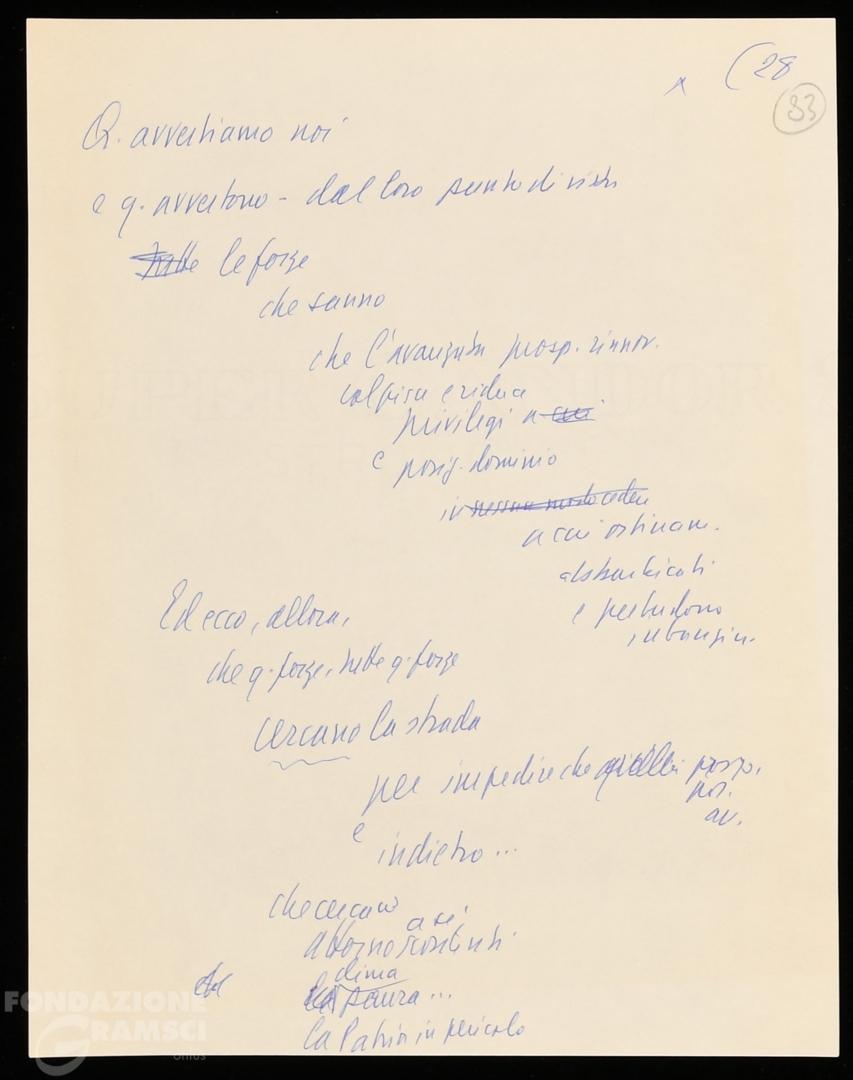 (28
83
Q. avvertiamo noi
e q. avvertono - dal loro punto di vista
tutte le forze
che sanno
che l'avanzata prosp. rinnov.
colpisca e riduca
privilegi a cui
e posiz. dominio
in nessun modo cedere
a cui ostinam.
abbarbicati
e
Ed ecco, allora,
che q. forze, tutte q. forze
cercano la strada
per impedire che quella prosp.
pos.
av.
e
indietro...
che cercano
a sé
attorno
clima
paura...
la Patria in pericolo
FONDAZIONE
GRAMSCI
onlus